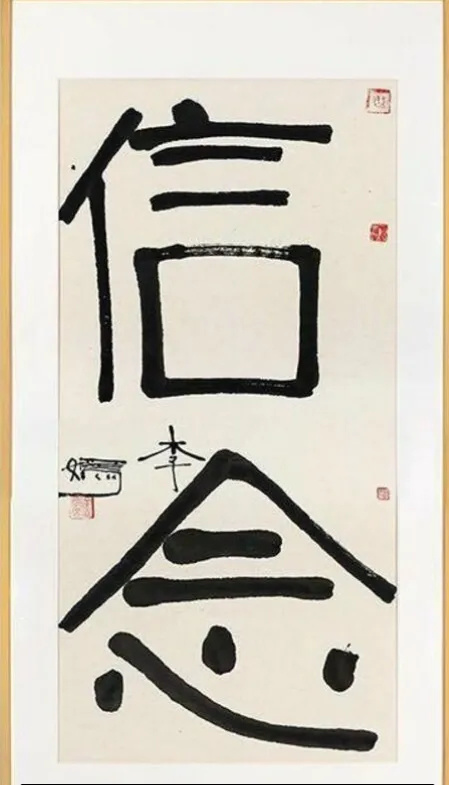 信
念
李